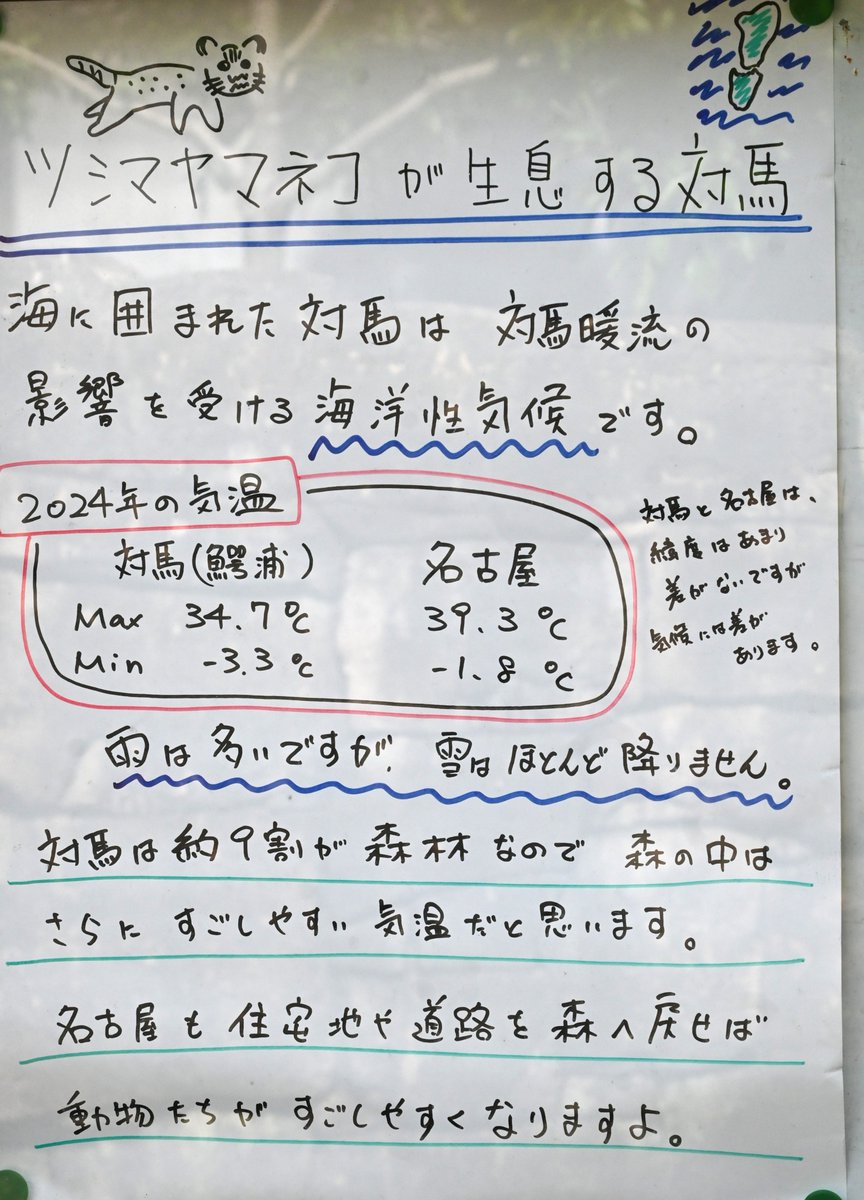 ツシマヤマネコが生息する対馬
海に囲まれた対馬は 対馬暖流の
影響を受ける海洋性気候です。
2024年の気温
対馬(鰐浦) 名古屋
Max 34.7℃ 39.3℃
Min -3.3℃ -1.8℃
対馬と名古屋は、
緯度はあまり
差がないですが
気候には差が
あります。
雨は多いですが、雪はほとんど降りません。
対馬は約9割が森林なので 森の中は
さらに すごしやすい 気温だと思います。
名古屋も住宅地や道路を森へ戻せば
動物たちが すごしやすくなりますよ。